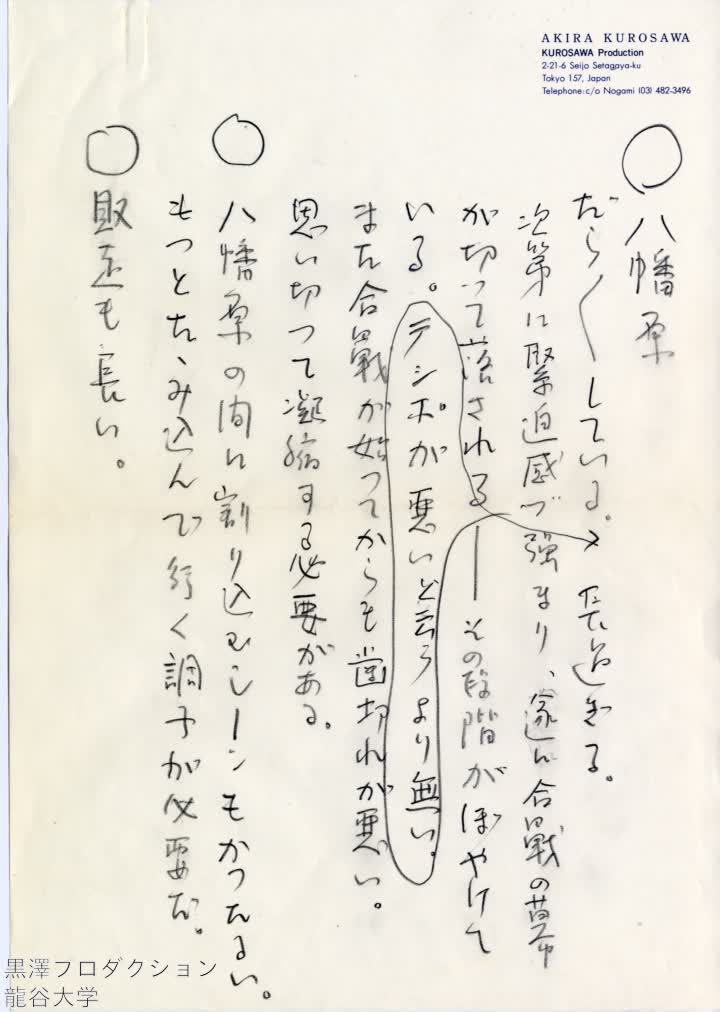 AKIRA KUROSAWA
KUROSAWA Production
2-21-6 Seijo Setagaya-ku
Tokyo 157, Japan
Telephone: c/o Nogami (03) 482-3496
○八幡原
だら〱している。長過ぎる。
次第に緊迫感が強まり、遂に合戦の幕
が切って落される――その段階がぼやけて
いる。テンポが悪いと云うより無い。
また合戦が始ってからも歯切れが悪い。
思い切って凝縮する必要がある。
○八幡原の間に割り込むシーンもかったるい。
もっとたゝみ込んで行く調子が必要だ。
○敗走も長い。
黒澤プロダクション
龍谷大学